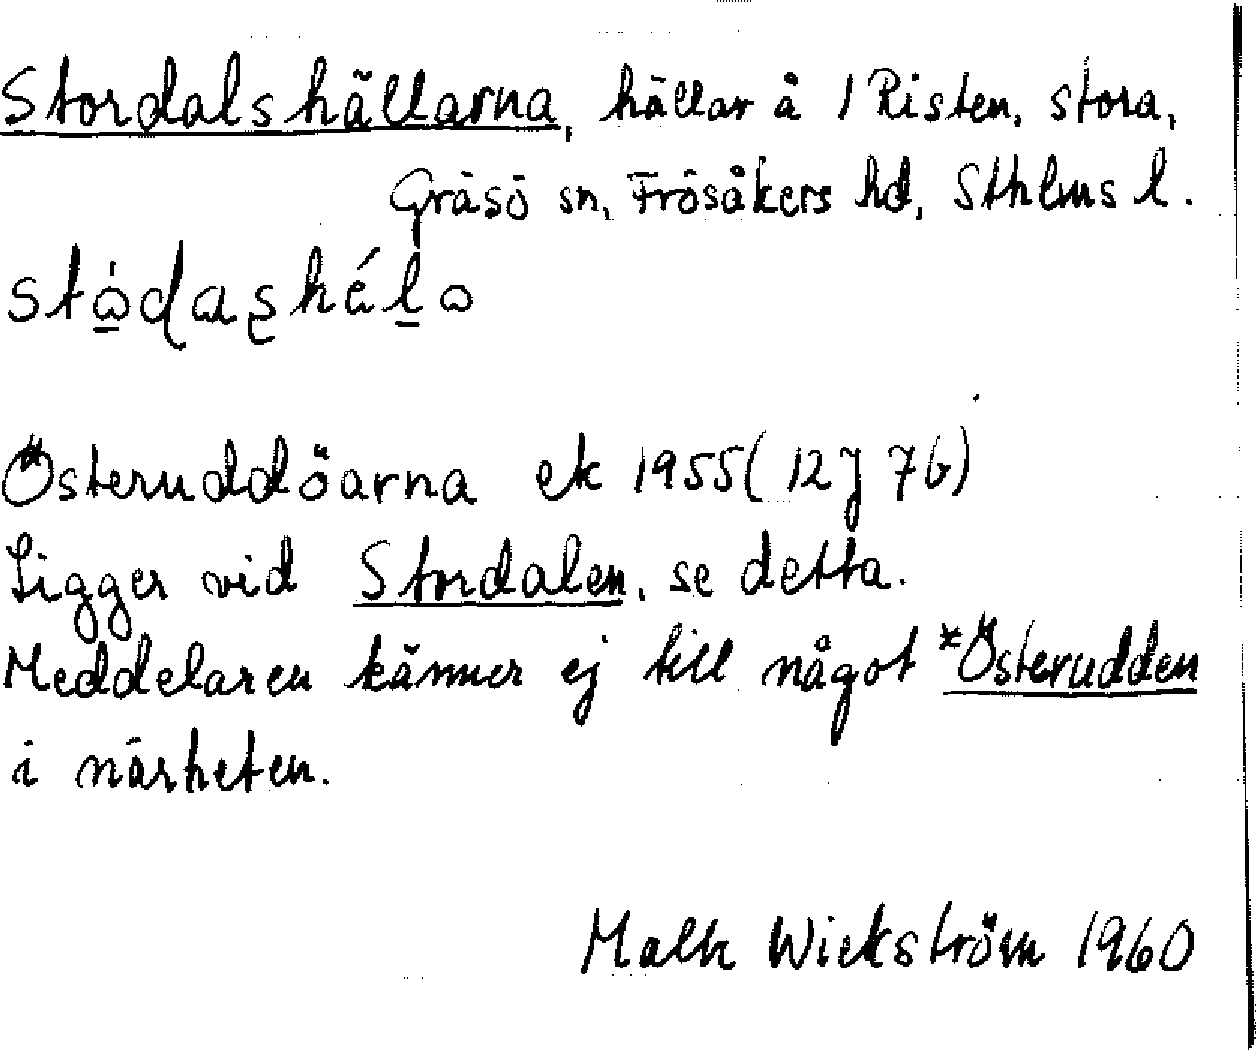 Stordalshällarna, hällar å / Risten, stora,
Gräsö sn, Frösåkers hd, Sthlms l.
Österuddöarna ek 1955 (12 J 7b)
Ligger vid Stordalen, se detta.
Meddelaren känner ej till något *Österudden
i närheten.
Wickström 1960